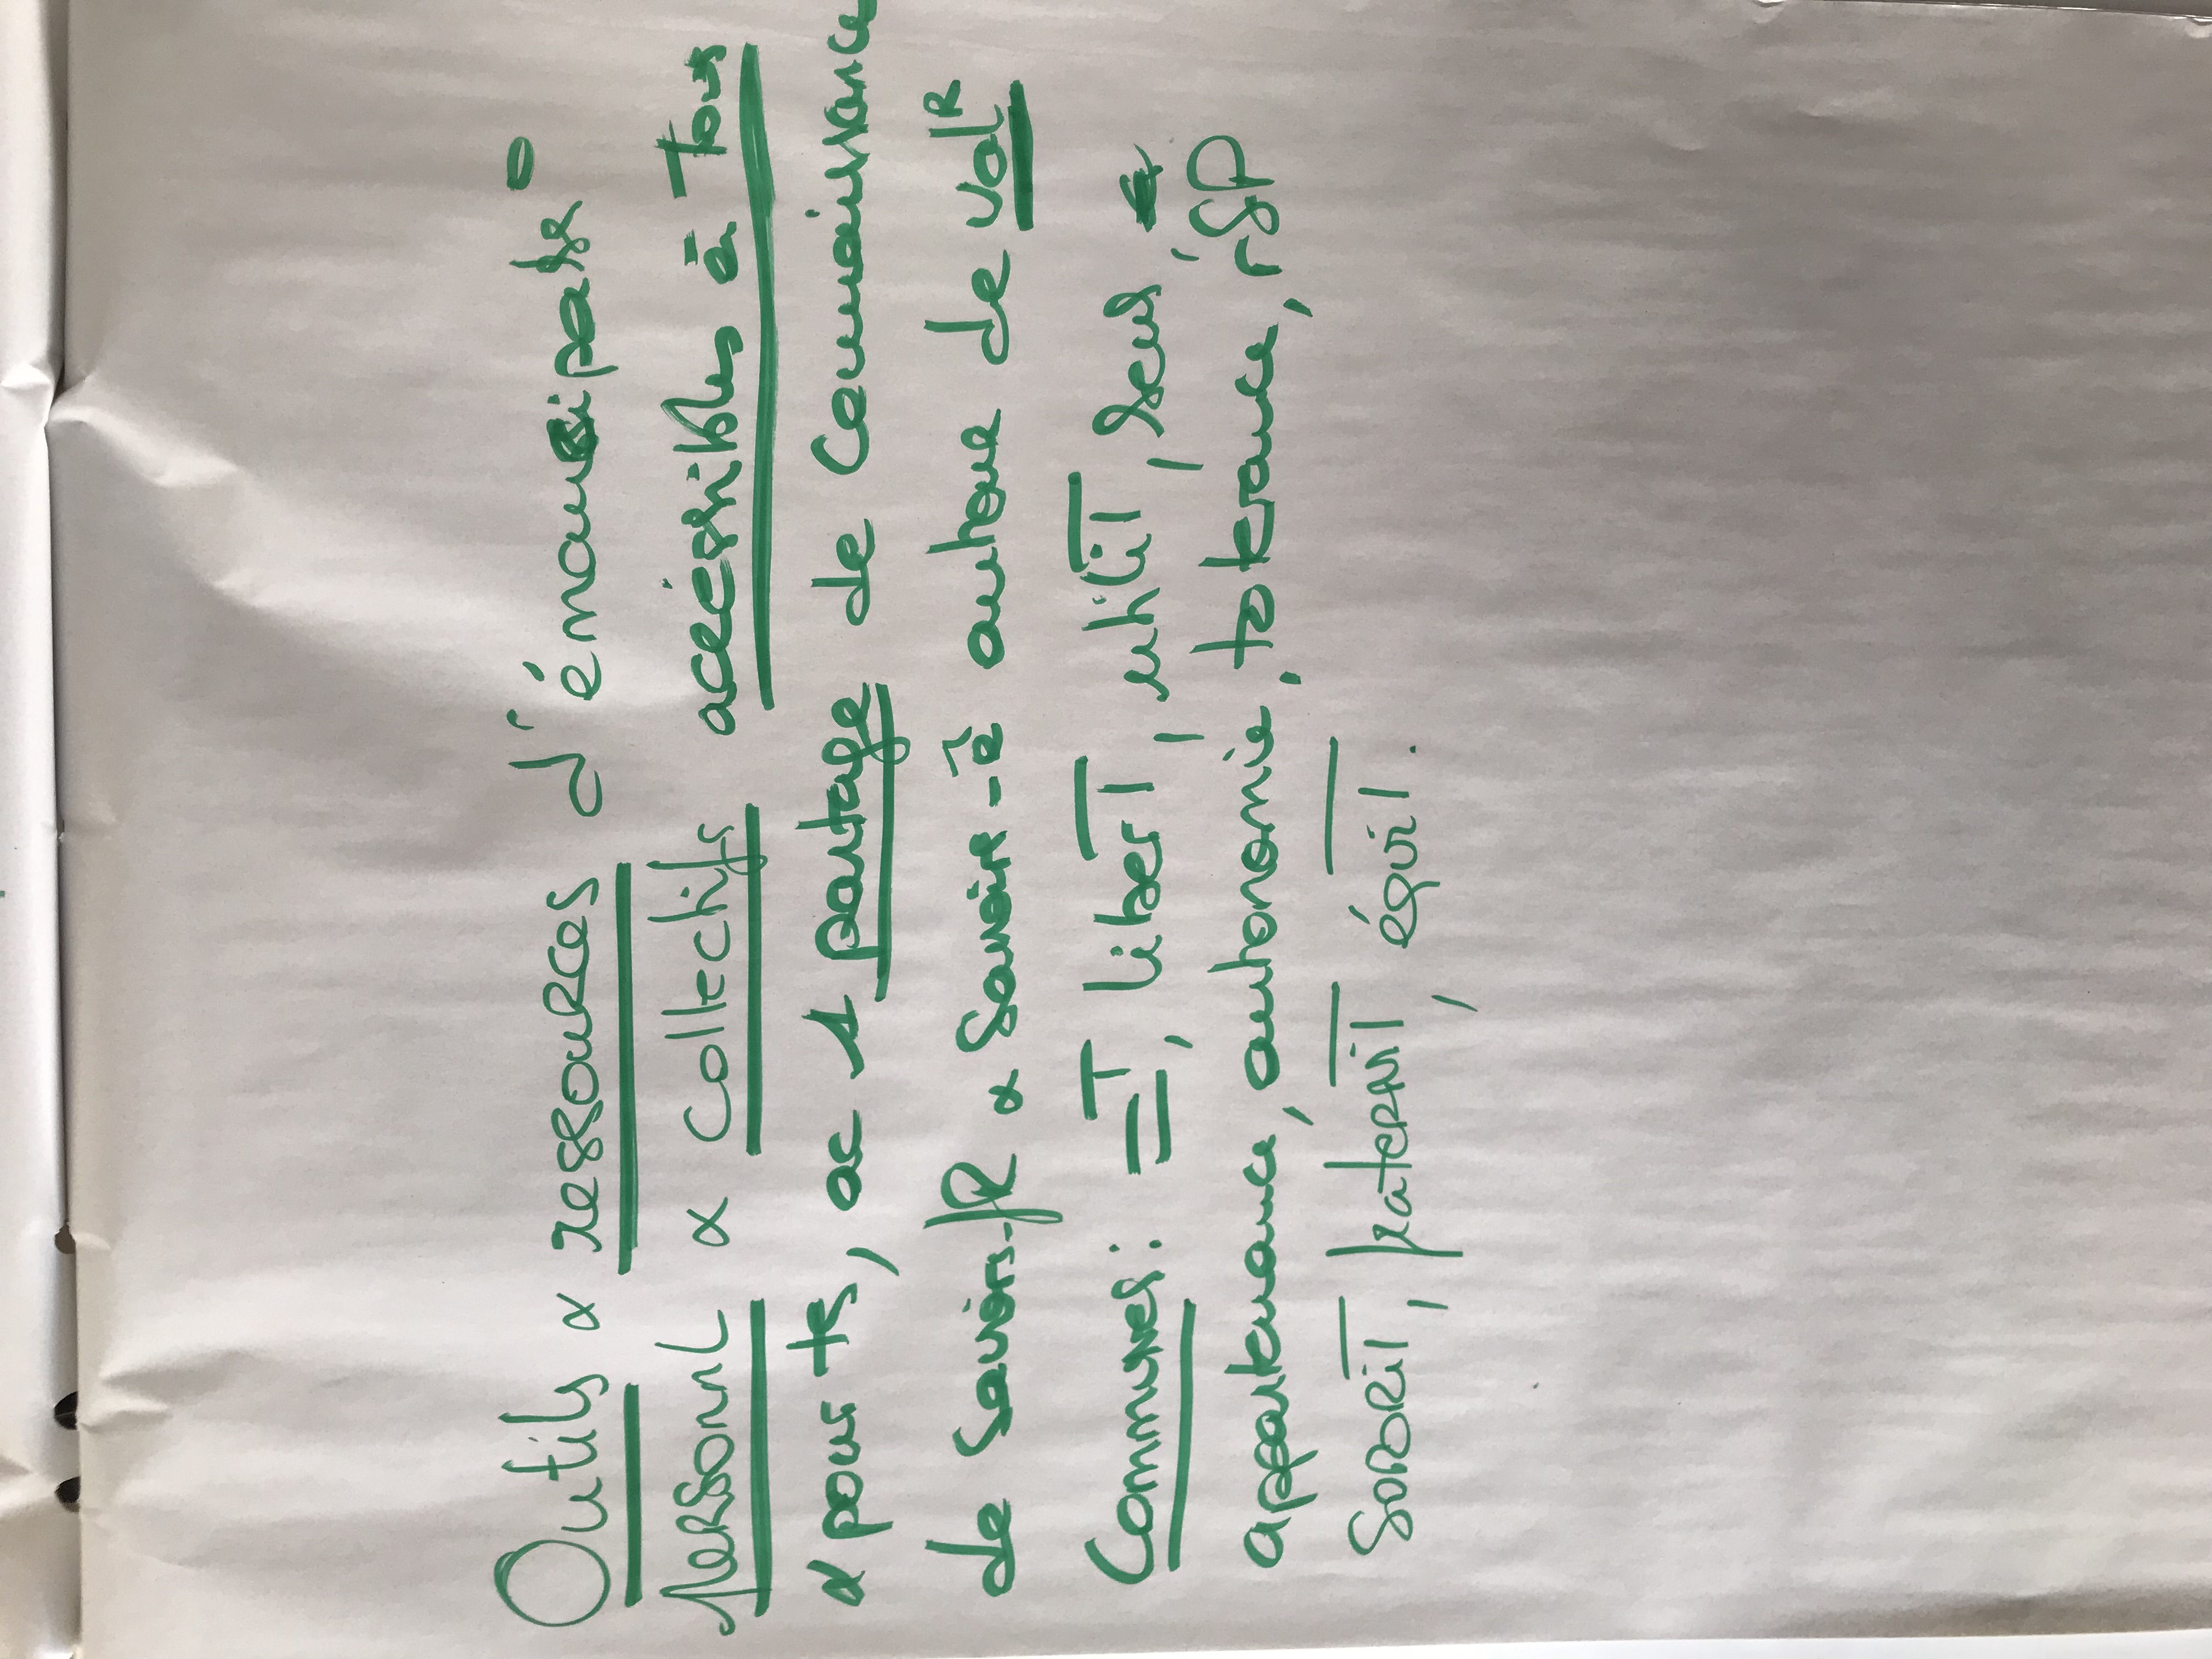 Outils & ressources d'émancipats°
personL & collectifs accéssibles à Tous
& pour ts, ac 1 partage de Connaissance
de Savoirs-fR & Savoir-ê autour de valR
Communes: =T, liberT, utiliT, sens
appartenance, autonomie, tolerance, rSP
SoRoRiT, fraterniT, équiT.